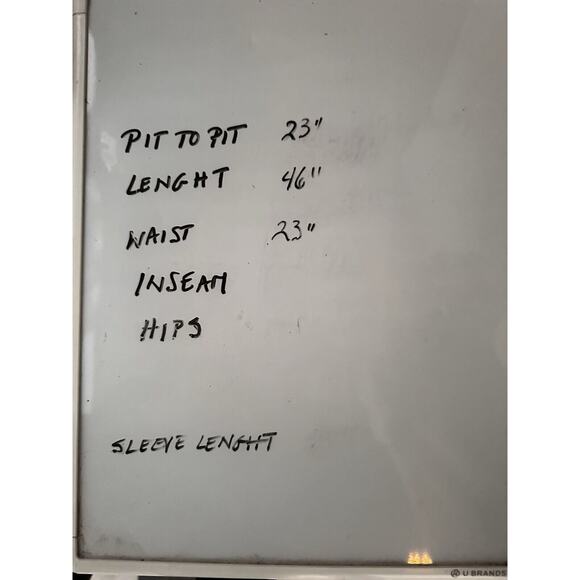 PIT TO PIT 23"
LENGHT 46"
WAIST 23"
INSEAM
HIPS
SLEEVE LENGHT
U BRANDS